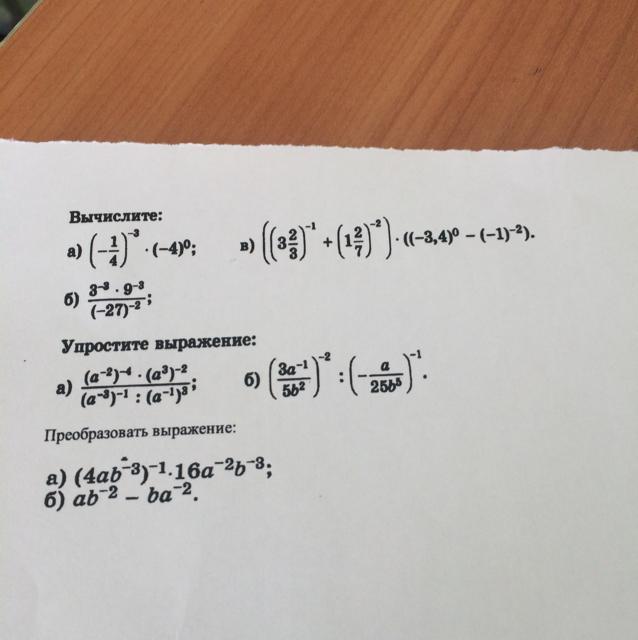 Вычислите:
а) (−1/4)⁻³ · (−4)⁰; в) ((3 2/3)⁻¹ + (1 2/7)⁻²) · ((−3,4)⁰ − (−1)⁻²).
б) 3⁻³ · 9⁻³ / (−27)⁻²;
Упростите выражение:
а) (a⁻²)⁻⁴ · (a³)⁻² / (a⁻³)⁻¹ : (a⁻¹)³; б) (3a⁻¹/5b²)⁻² : (−a/25b⁵)⁻¹.
Преобразовать выражение:
а) (4ab⁻³)⁻¹·16a⁻²b⁻³;
б) ab⁻² − ba⁻².